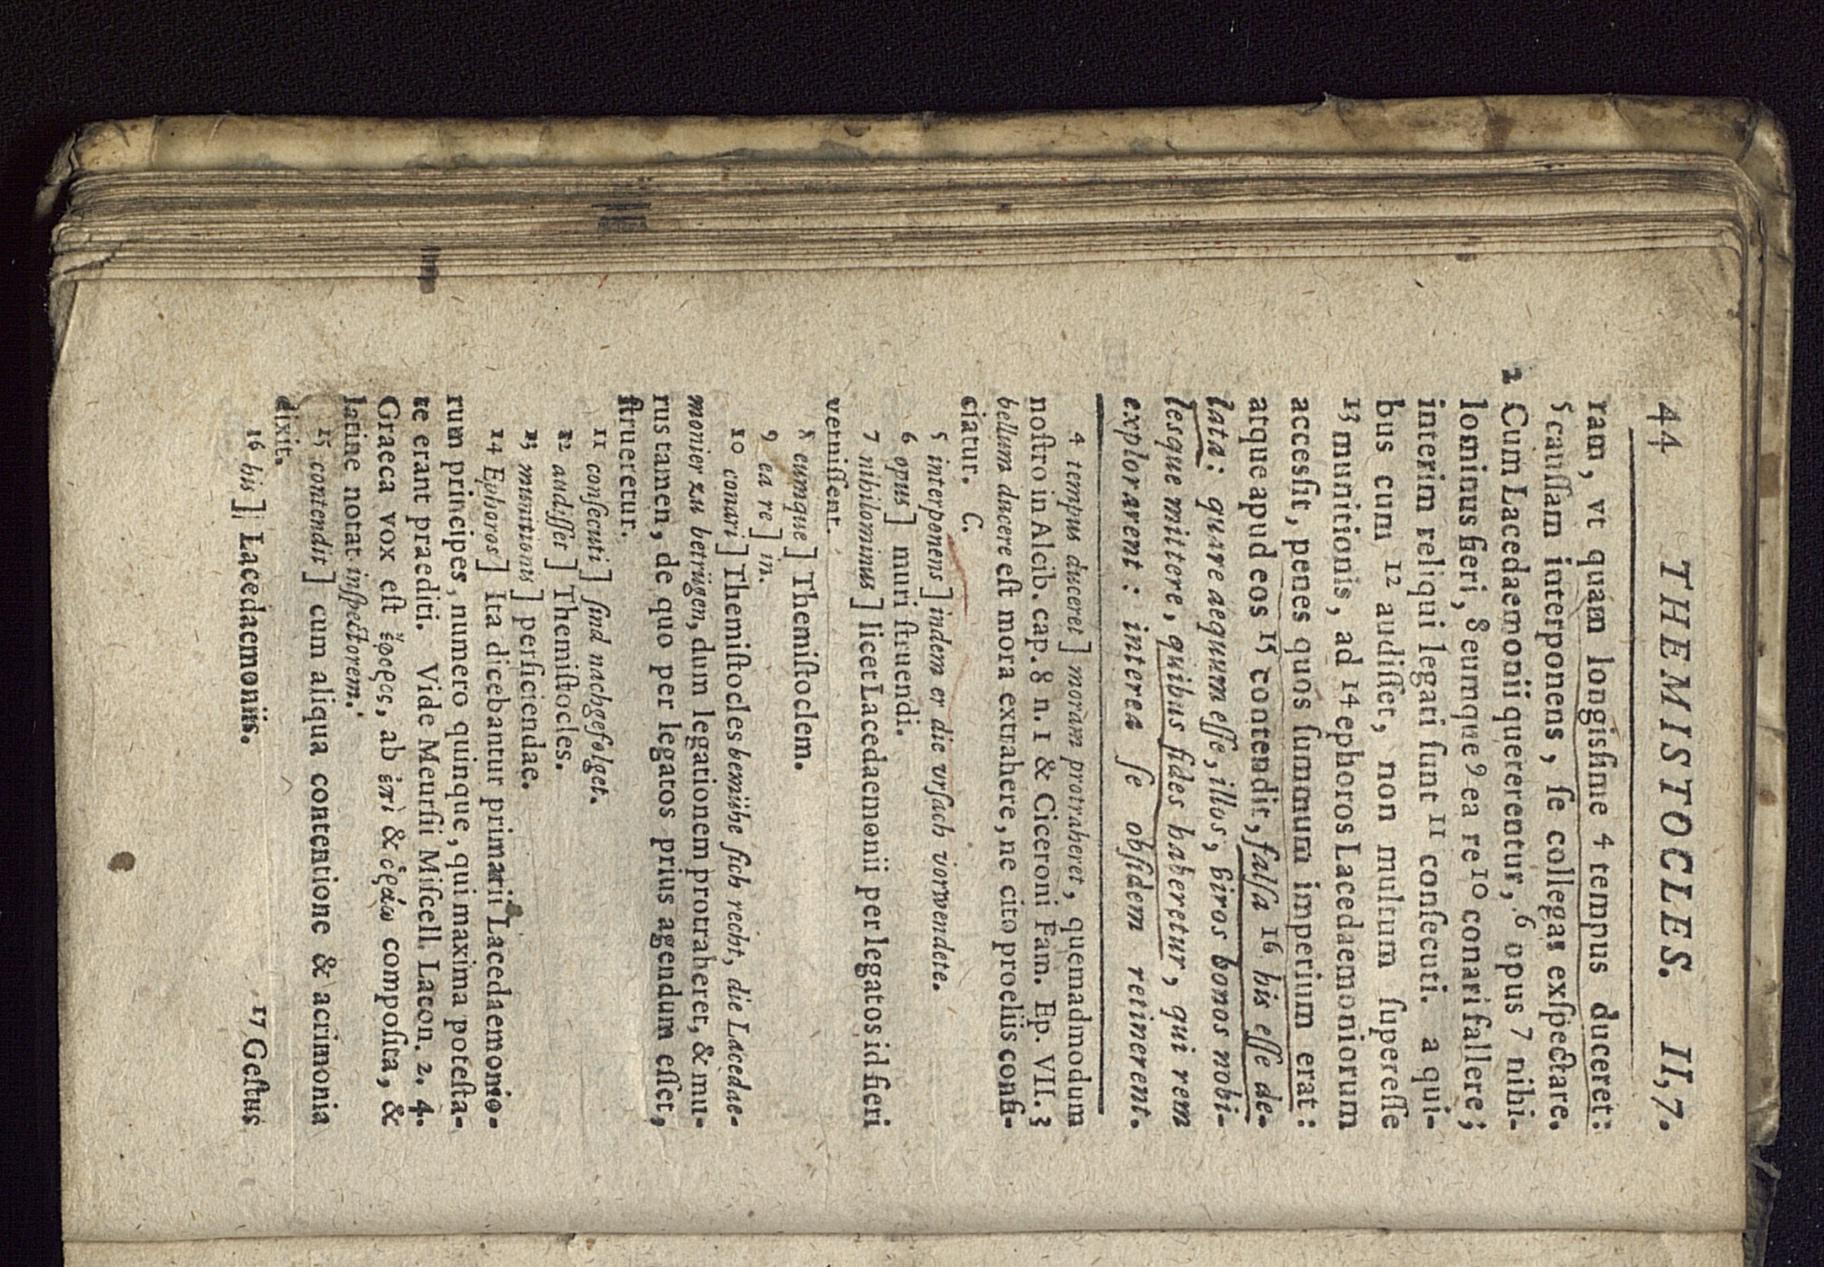 44 THEMISTOCLES. II,7.
ram, vt quam longisſime 4 tempus duceret:
5 cauſſam interponens, ſe collegas exſpectare.
2 Cum Lacedaemonii quererentur, 6 opus 7 nihi-
lominus fieri, 8 eumque 9 ea re 10 conari fallere;
interim reliqui legati ſunt 11 conſecuti. a qui-
bus cum 12 audiſſet, non multum ſupereſſe
13 munitionis, ad 14 ephoros Lacedaemoniorum
accesſit, penes quos ſummum imperium erat:
atque apud eos 15 contendit, falſa 16 his eſſe de-
lata: quare aequum eſſe, illos, viros bonos nobi-
lesque mittere, quibus fides haberetur, qui rem
explorarent: interea ſe obſidem retinerent.
4 tempus duceret] moram protraheret, quemadmodum
noſtro in Alcib. cap. 8 n. 1 & Ciceroni Fam. Ep. VII. 3
bellum ducere eſt mora extrahere, ne cito proeliis confi-
ciatur. C.
5 interponens] indem er die vrſach vorwendete.
6 opus] muri ſtruendi.
7 nihilominus] licet Lacedaemonii per legatos id fieri
vetuiſſent.
8 eumque] Themiſtoclem.
9 ea re] in.
10 conari] Themiſtocles bemühe ſich recht, die Lacedae-
monier zu betrügen, dum legationem protraheret, & mu-
rus tamen, de quo per legatos prius agendum eſſet,
ſtrueretur.
11 conſecuti] ſind nachgefolget.
12 audiſſet] Themiſtocles.
13 munitionis] perficiendae.
14 Ephoros] Ita dicebantur primarii Lacedaemonio-
rum principes, numero quinque, qui maxima poteſta-
te erant praediti. Vide Meurſii Miſcell. Lacon. 2. 4.
Graeca vox eſt ἔφορος, ab ἐπὶ & ὁράω compoſita, &
latine notat inſpectorem.
15 contendit] cum aliqua contentione & acrimonia
dixit.
16 his] Lacedaemoniis.
17 Geſtus